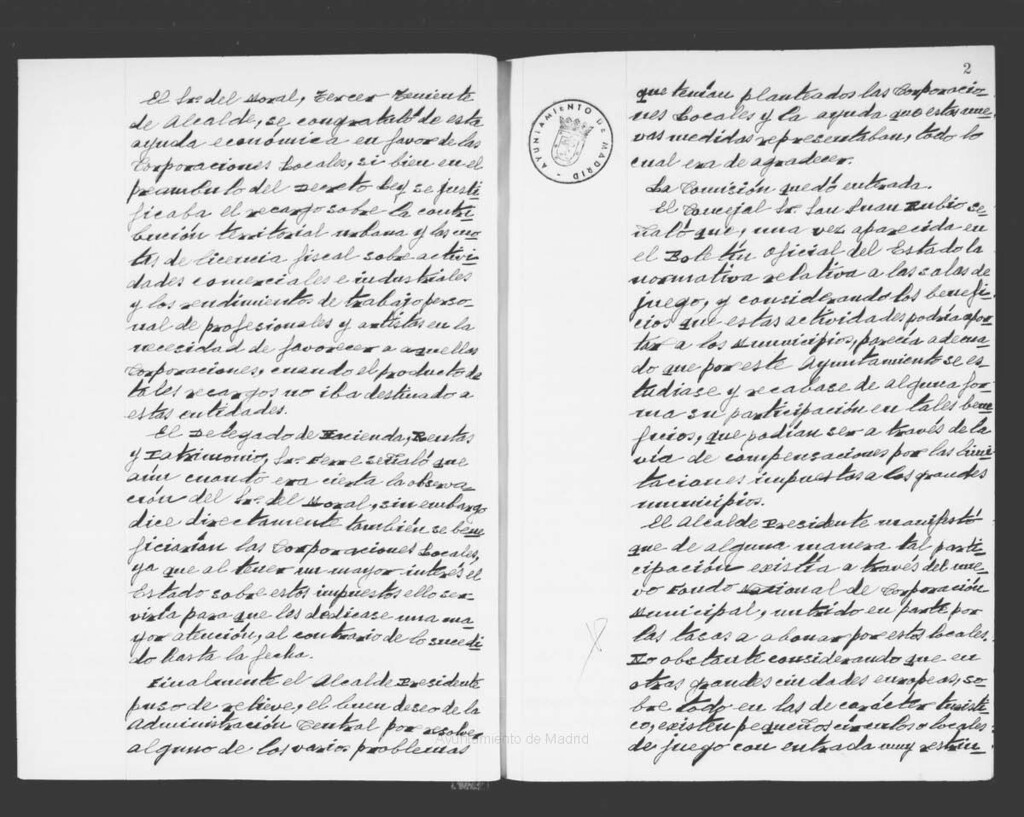 El Sr. del Moral, Tercer Teniente
de Alcalde, se congratuló de esta
ayuda económica en favor de las
Corporaciones Locales, si bien en el
preámbulo del Decreto Ley se justi
ficaba el recargo sobre la contri
bución territorial urbana y las cuo
tas de licencia fiscal sobre activi
dades comerciales e industriales
y los rendimientos de trabajo perso
nal de profesionales y artistas en la
necesidad de favorecer a aquellas
Corporaciones, cuando el producto de
tales recargos no iba destinado a
estas entidades.
El Delegado de Hacienda, Rentas
y Patrimonio, Sr. Ferre señaló que
aún cuando era cierta la observa
ción del Sr. del Moral, sin embargo
dice directamente también se bene
ficiarían las Corporaciones Locales,
ya que al tener un mayor interés el
Estado sobre estos impuestos ello ser
viría para que les dedicase una ma
yor atención, al contrario de lo sucedi
do hasta la fecha.
Finalmente el Alcalde Presidente
puso de relieve, el buen deseo de la
Administración Central por resolver
alguno de los varios problemas
2
AYUNTAMIENTO DE MADRID
que tenían planteados las Corporacio
nes Locales y la ayuda que estas nue
vas medidas representaban, todo lo
cual era de agradecer.
La Comisión quedó enterada.
El Concejal Sr. San Juan Rubio se
ñaló que, una vez aparecida en
el Boletín Oficial del Estado la
normativa relativa a las salas de
juego, y considerando los benefi
cios que estas actividades podría apor
tar a los Municipios, parecía adecua
do que por este Ayuntamiento se es
tudiase y recabase de alguna for
ma su participación en tales bene
ficios, que podían ser a través de la
vía de compensaciones por las limi
taciones impuestas a los grandes
municipios.
El Alcalde Presidente manifestó
que de alguna manera tal parti
cipación existía a través del nue
vo Fondo Nacional de Corporación
Municipal, nutrido en parte por
las tasas a abonar por estos locales.
No obstante considerando que en
otras grandes ciudades europeas, so
bre todo en las de carácter turísti
co, existen pequeños círculos o locales
de juego con entrada muy restrin
Ayuntamiento de Madrid